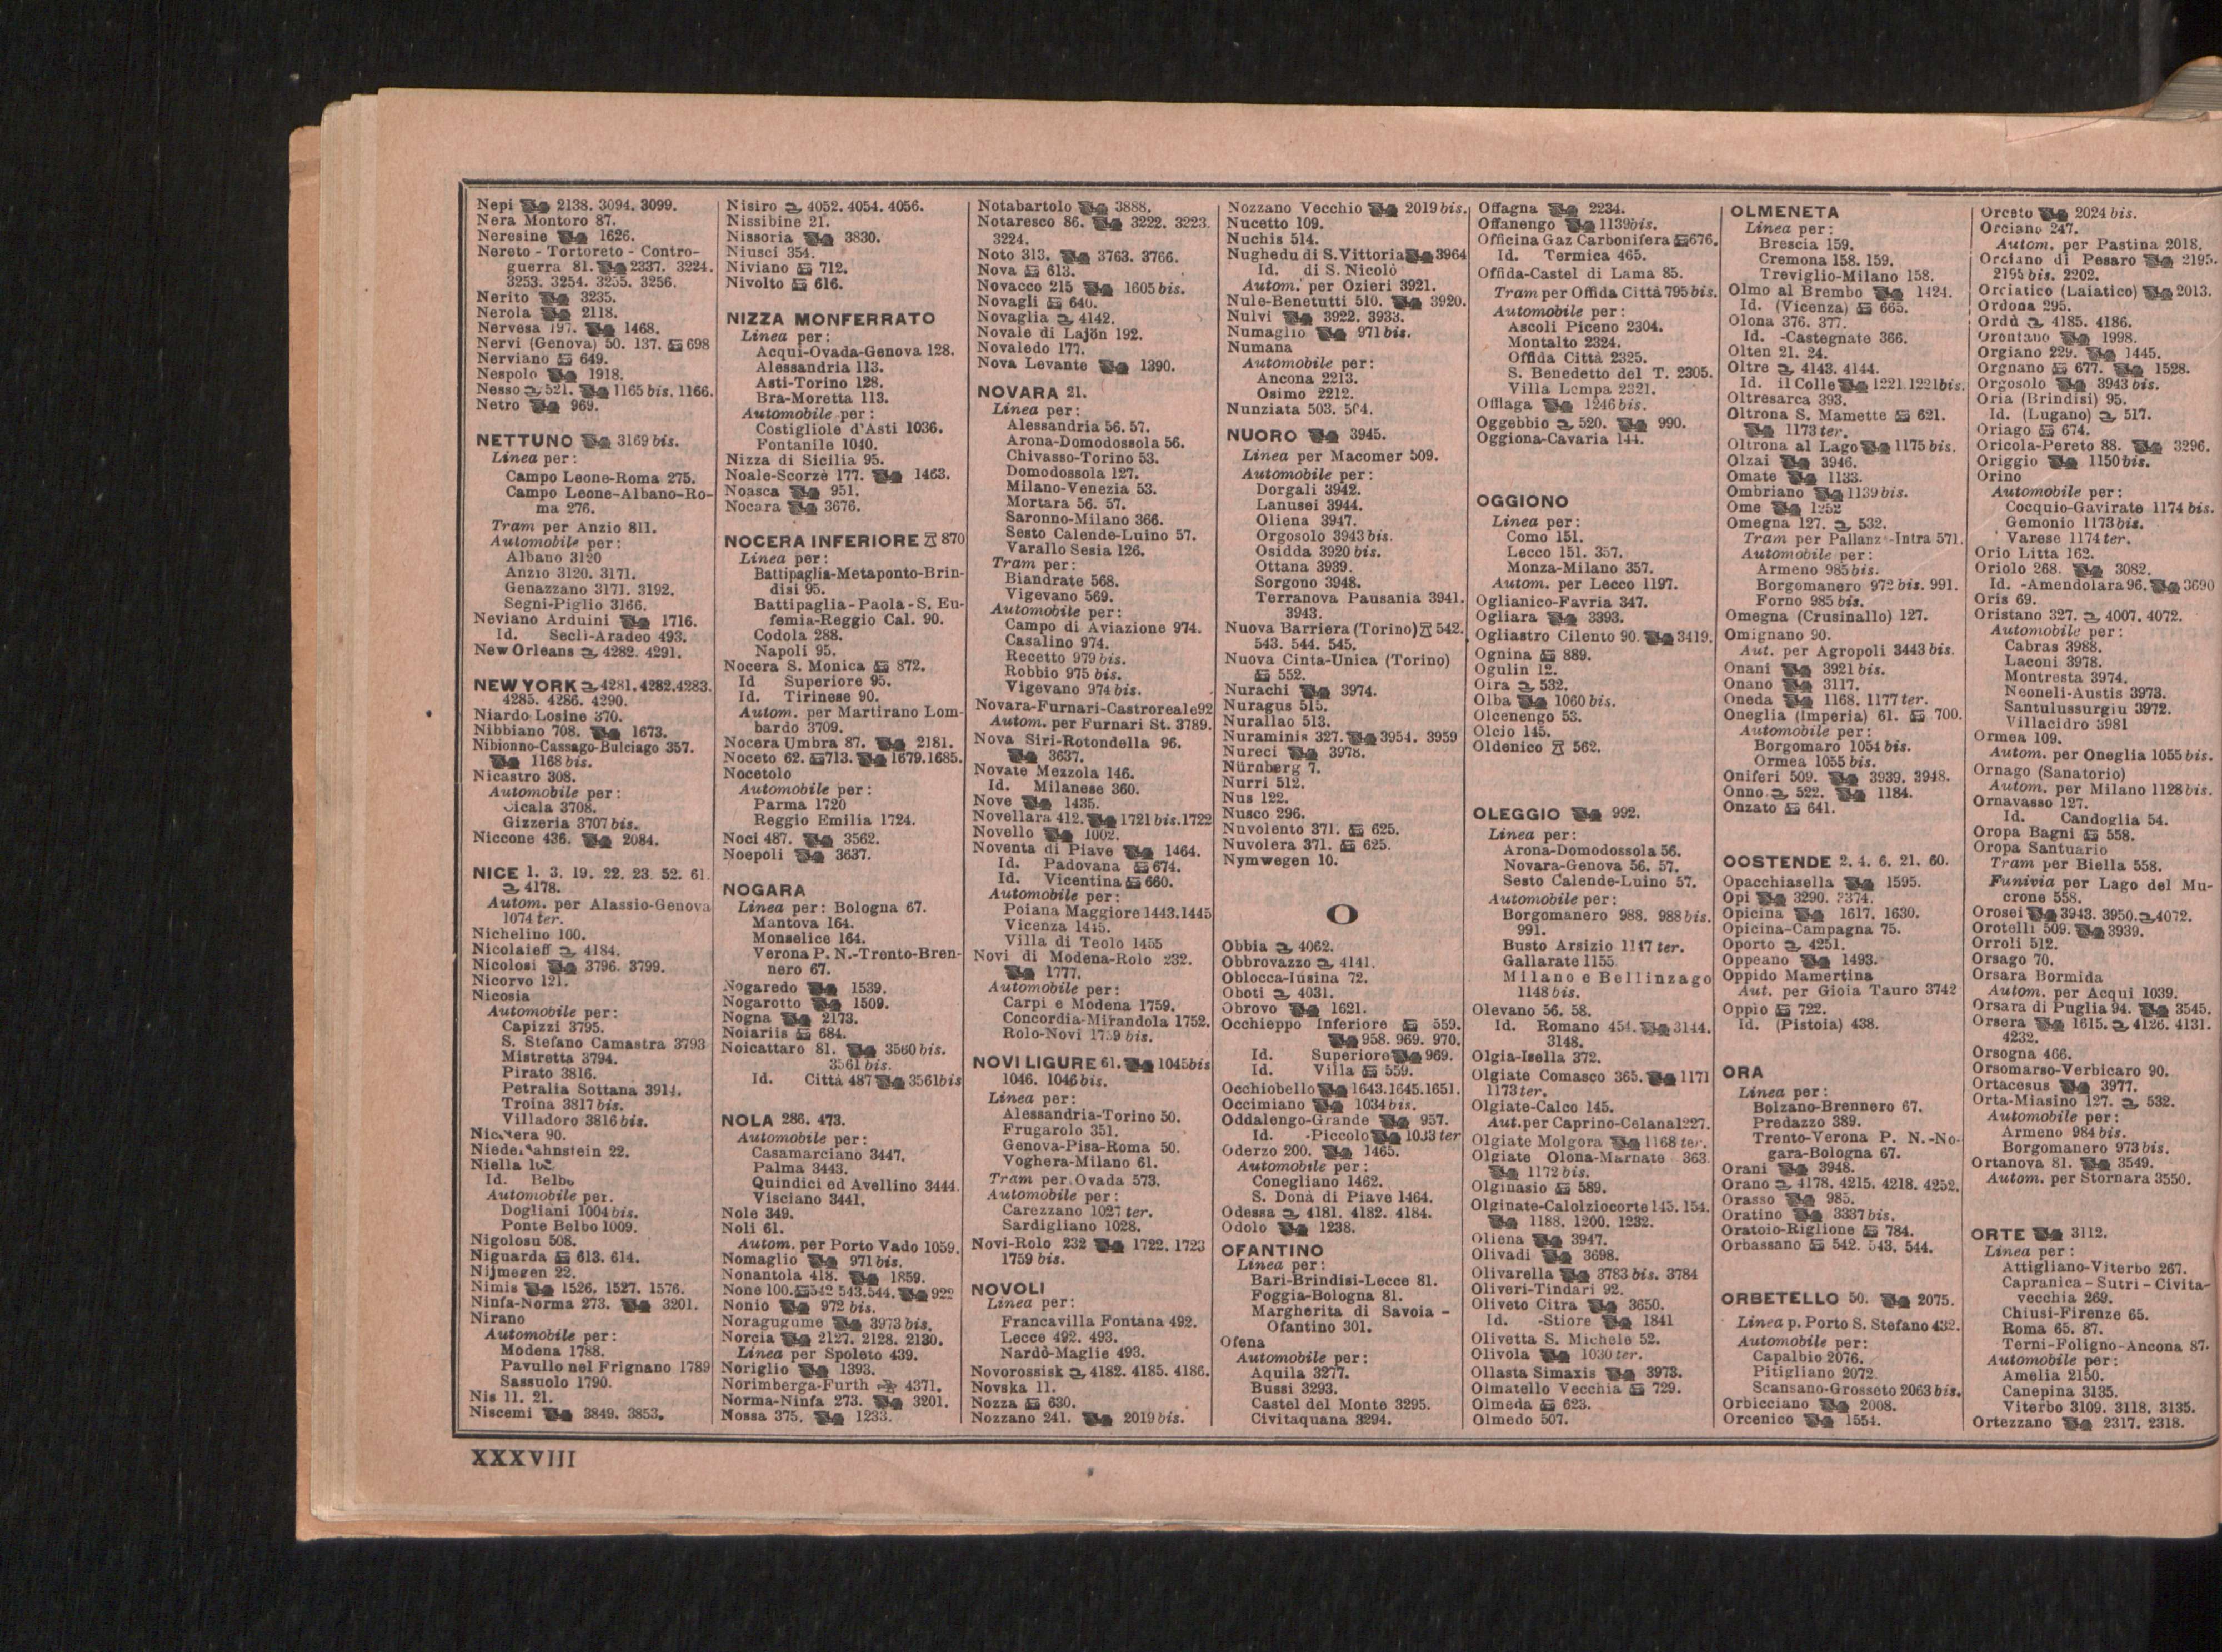 Nepi 2138. 3094. 3099.
Nera Montoro 87.
Neresine 1626.
Nereto - Tortoreto - Contro-
guerra 81. 2337. 3224.
3253. 3254. 3255. 3256.
Nerito 3235.
Nerola 2118.
Nervesa 197. 1468.
Nervi (Genova) 50. 137. 698
Nerviano 649.
Nespolo 1918.
Nesso 521. 1165 bis. 1166.
Netro 969.
NETTUNO 3169 bis.
Linea per:
Campo Leone-Roma 275.
Campo Leone-Albano-Ro-
ma 276.
Tram per Anzio 811.
Automobile per:
Albano 3120
Anzio 3120. 3171.
Genazzano 3171. 3192.
Segni-Piglio 3166.
Neviano Arduini 1716.
Id. Secli-Aradeo 493.
New Orleans 4282. 4291.
NEW YORK 4281. 4282. 4283.
4285. 4286. 4290.
Niardo Losine 370.
Nibbiano 708. 1673.
Nibionno-Cassago-Bulciago 357.
1168 bis.
Nicastro 308.
Automobile per:
Cicala 3708.
Gizzeria 3707 bis.
Niccone 436. 2084.
NICE 1. 3. 19. 22. 23. 52. 61.
4178.
Autom. per Alassio-Genova
1074 ter.
Nichelino 100.
Nicolaieff 4184.
Nicolosi 3796. 3799.
Nicorvo 121.
Nicosia
Automobile per:
Capizzi 3795.
S. Stefano Camastra 3793
Mistretta 3794.
Pirato 3816.
Petralia Sottana 3914.
Troina 3817 bis.
Villadoro 3816 bis.
Nicotera 90.
Niederlahnstein 22.
Niella
Id. Belbo
Automobile per:
Dogliani 1004 bis.
Ponte Belbo 1009.
Nigolosu 508.
Niguarda 613. 614.
Nijmegen 22.
Nimis 1526. 1527. 1576.
Ninfa-Norma 273. 3201.
Nirano
Automobile per:
Modena 1788.
Pavullo nel Frignano 1789
Sassuolo 1790.
Nis 11. 21.
Niscemi 3849. 3853.
Nisiro 4052. 4054. 4056.
Nissibine 21.
Nissoria 3830.
Niusci 354.
Niviano 712.
Nivolto 616.
NIZZA MONFERRATO
Linea per:
Acqui-Ovada-Genova 128.
Alessandria 113.
Asti-Torino 128.
Bra-Moretta 113.
Automobile per:
Costigliole d'Asti 1036.
Fontanile 1040.
Nizza di Sicilia 95.
Noale-Scorzè 177. 1463.
Noasca 951.
Nocara 3676.
NOCERA INFERIORE 870
Linea per:
Battipaglia-Metaponto-Brin-
disi 95.
Battipaglia-Paola-S. Eu-
femia-Reggio Cal. 90.
Codola 288.
Napoli 95.
Nocera S. Monica 872.
Id Superiore 95.
Id. Tirinese 90.
Autom. per Martirano Lom-
bardo 3709.
Nocera Umbra 87. 2181.
Noceto 62. 713. 1679. 1685.
Nocetolo
Automobile per:
Parma 1720
Reggio Emilia 1724.
Noci 487. 3562.
Noepoli 3637.
NOGARA
Linea per: Bologna 67.
Mantova 164.
Monselice 164.
Verona P. N.-Trento-Bren-
nero 67.
Nogaredo 1539.
Nogarotto 1509.
Nogna 2173.
Noiariis 684.
Noicattaro 81. 3560 bis.
3561 bis.
Id. Città 487 3561bis
NOLA 286. 473.
Automobile per:
Casamarciano 3447.
Palma 3443.
Quindici ed Avellino 3444.
Visciano 3441.
Nole 349.
Noli 61.
Autom. per Porto Vado 1059.
Nomaglio 971 bis.
Nonantola 418. 1859.
None 100. 542 543. 544. 922
Nonio 972 bis.
Noragugume 3973 bis.
Norcia 2127. 2128. 2130.
Linea per Spoleto 439.
Noriglio 1393.
Norimberga-Furth 4371.
Norma-Ninfa 273. 3201.
Nossa 375. 1233.
Notabartolo 3888.
Notaresco 86. 3222. 3223.
3224.
Noto 313. 3763. 3766.
Nova 613.
Novacco 215 1605 bis.
Novagli 640.
Novaglia 4142.
Novale di Lajön 192.
Novaledo 177.
Nova Levante 1390.
NOVARA 21.
Linea per:
Alessandria 56. 57.
Arona-Domodossola 56.
Chivasso-Torino 53.
Domodossola 127.
Milano-Venezia 53.
Mortara 56. 57.
Saronno-Milano 366.
Sesto Calende-Luino 57.
Varallo Sesia 126.
Tram per:
Biandrate 568.
Vigevano 569.
Automobile per:
Campo di Aviazione 974.
Casalino 974.
Recetto 979 bis.
Robbio 975 bis.
Vigevano 974 bis.
Novara-Furnari-Castroreale92
Autom. per Furnari St. 3789.
Nova Siri-Rotondella 96.
3637.
Novate Mezzola 146.
Id. Milanese 360.
Nove 1435.
Novellara 412. 1721 bis. 1722
Novello 1002.
Noventa di Piave 1464.
Id. Padovana 674.
Id. Vicentina 660.
Automobile per:
Poiana Maggiore 1443. 1445
Vicenza 1445.
Villa di Teolo 1455
Novi di Modena-Rolo 232.
1777.
Automobile per:
Carpi e Modena 1759.
Concordia-Mirandola 1752.
Rolo-Novi 1759 bis.
NOVI LIGURE 61. 1045bis
1046. 1046 bis.
Linea per:
Alessandria-Torino 50.
Frugarolo 351.
Genova-Pisa-Roma 50.
Voghera-Milano 61.
Tram per Ovada 573.
Automobile per:
Carezzano 1027 ter.
Sardigliano 1028.
Novi-Rolo 232 1722. 1723
1759 bis.
NOVOLI
Linea per:
Francavilla Fontana 492.
Lecce 492. 493.
Nardò-Maglie 493.
Novorossisk 4182. 4185. 4186.
Novska 11.
Nozza 630.
Nozzano 241. 2019 bis.
Nozzano Vecchio 2019 bis.
Nucetto 109.
Nuchis 514.
Nughedu di S. Vittoria 3964
Id. di S. Nicolò
Autom. per Ozieri 3921.
Nule-Benetutti 510. 3920.
Nulvi 3922. 3933.
Numaglio 971 bis.
Numana
Automobile per:
Ancona 2213.
Osimo 2212.
Nunziata 503. 504.
NUORO 3945.
Linea per Macomer 509.
Automobile per:
Dorgali 3942.
Lanusei 3944.
Oliena 3947.
Orgosolo 3943 bis.
Osidda 3920 bis.
Ottana 3939.
Sorgono 3948.
Terranova Pausania 3941.
3943.
Nuova Barriera (Torino) 542.
543. 544. 545.
Nuova Cinta-Unica (Torino)
552.
Nurachi 3974.
Nuragus 515.
Nurallao 513.
Nuraminis 327. 3954. 3959
Nureci 3978.
Nürnberg 7.
Nurri 512.
Nus 122.
Nusco 296.
Nuvolento 371. 625.
Nuvolera 371. 625.
Nymwegen 10.
O
Obbia 4062.
Obbrovazzo 4141.
Oblocca-Iúsina 72.
Oboti 4031.
Obrovo 1621.
Occhieppo Inferiore 559.
958. 969. 970.
Id. Superiore 969.
Id. Villa 559.
Occhiobello 1643. 1645. 1651.
Occimiano 1034 bis.
Oddalengo-Grande 957.
Id. -Piccolo 1033 ter
Oderzo 200. 1465.
Automobile per:
Conegliano 1462.
S. Donà di Piave 1464.
Odessa 4181. 4182. 4184.
Odolo 1238.
OFANTINO
Linea per:
Bari-Brindisi-Lecce 81.
Foggia-Bologna 81.
Margherita di Savoia -
Ofantino 301.
Ofena
Automobile per:
Aquila 3277.
Bussi 3293.
Castel del Monte 3295.
Civitaquana 3294.
Offagna 2234.
Offanengo 1139bis.
Officina Gaz Carbonifera 676.
Id. Termica 465.
Offida-Castel di Lama 85.
Tram per Offida Città 795 bis.
Automobile per:
Ascoli Piceno 2304.
Montalto 2324.
Offida Città 2325.
S. Benedetto del T. 2305.
Villa Lempa 2321.
Offlaga 1246 bis.
Oggebbio 520. 990.
Oggiona-Cavaria 144.
OGGIONO
Linea per:
Como 151.
Lecco 151. 357.
Monza-Milano 357.
Autom. per Lecco 1197.
Oglianico-Favria 347.
Ogliara 3393.
Ogliastro Cilento 90. 3419.
Ognina 889.
Ogulin 12.
Oira 532.
Olba 1060 bis.
Olcenengo 53.
Olcio 145.
Oldenico 562.
OLEGGIO 992.
Linea per:
Arona-Domodossola 56.
Novara-Genova 56. 57.
Sesto Calende-Luino 57.
Automobile per:
Borgomanero 988. 988 bis.
991.
Busto Arsizio 1147 ter.
Gallarate 1155
Milano e Bellinzago
1148 bis.
Olevano 56. 58.
Id. Romano 454. 3144.
3148.
Olgia-Isella 372.
Olgiate Comasco 365. 1171
1173 ter.
Olgiate-Calco 145.
Aut. per Caprino-Celana 1227.
Olgiate Molgora 1168 ter.
Olgiate Olona-Marnate 363.
1172 bis.
Olginasio 589.
Olginate-Calolziocorte 145. 154.
1188. 1200. 1232.
Oliena 3947.
Olivadi 3698.
Olivarella 3783 bis. 3784
Oliveri-Tindari 92.
Oliveto Citra 3650.
Id. -Stiore 1841
Olivetta S. Michele 52.
Olivola 1030 ter.
Ollasta Simaxis 3973.
Olmatello Vecchia 729.
Olmeda 623.
Olmedo 507.
OLMENETA
Linea per:
Brescia 159.
Cremona 158. 159.
Treviglio-Milano 158.
Olmo al Brembo 1424.
Id. (Vicenza) 665.
Olona 376. 377.
Id. -Castegnate 366.
Olten 21. 24.
Oltre 4143. 4144.
Id. il Colle 1221. 1221bis.
Oltresarca 393.
Oltrona S. Mamette 621.
1173 ter.
Oltrona al Lago 1175 bis.
Olzai 3946.
Omate 1133.
Ombriano 1139 bis.
Ome 1252
Omegna 127. 532.
Tram per Pallanz -Intra 571.
Automobile per:
Armeno 985 bis.
Borgomanero 972 bis. 991.
Forno 985 bis.
Omegna (Crusinallo) 127.
Omignano 90.
Aut. per Agropoli 3443 bis.
Onani 3921 bis.
Onano 3117.
Oneda 1168. 1177 ter.
Oneglia (Imperia) 61. 700.
Automobile per:
Borgomaro 1054 bis.
Ormea 1055 bis.
Oniferi 509. 3939. 3948.
Onno 522. 1184.
Onzato 641.
OOSTENDE 2. 4. 6. 21. 60.
Opacchiasella 1595.
Opi 3290. 3374.
Opicina 1617. 1630.
Opicina-Campagna 75.
Oporto 4251.
Oppeano 1493.
Oppido Mamertina
Aut. per Gioia Tauro 3742
Oppio 722.
Id. (Pistoia) 438.
ORA
Linea per:
Bolzano-Brennero 67.
Predazzo 389.
Trento-Verona P. N.-No-
gara-Bologna 67.
Orani 3948.
Orano 4178. 4215. 4218. 4252.
Orasso 985.
Oratino 3337 bis.
Oratoio-Riglione 784.
Orbassano 542. 543. 544.
ORBETELLO 50. 2075.
Linea p. Porto S. Stefano 432.
Automobile per:
Capalbio 2076.
Pitigliano 2072
Scansano-Grosseto 2063 bis.
Orbicciano 2008.
Orcenico 1554.
Orceto 2024 bis.
Orciano 247.
Autom. per Pastina 2018.
Orciano di Pesaro 2195.
2195 bis. 2202.
Orciatico (Laiatico) 2013.
Ordona 295.
Ordù 4185. 4186.
Orentano 1998.
Orgiano 229. 1445.
Orgnano 677. 1528.
Orgosolo 3943 bis.
Oria (Brindisi) 95.
Id. (Lugano) 517.
Oriago 674.
Oricola-Pereto 88. 3296.
Origgio 1150 bis.
Orino
Automobile per:
Cocquio-Gavirate 1174 bis.
Gemonio 1173 bis.
Varese 1174 ter.
Orio Litta 162.
Oriolo 268. 3082.
Id. -Amendolara 96. 3690
Oris 69.
Oristano 327. 4007. 4072.
Automobile per:
Cabras 3988.
Laconi 3978.
Montresta 3974.
Neoneli-Austis 3973.
Santulussurgiu 3972.
Villacidro 3981
Ormea 109.
Autom. per Oneglia 1055 bis.
Ornago (Sanatorio)
Autom. per Milano 1128 bis.
Ornavasso 127.
Id. Candoglia 54.
Oropa Bagni 558.
Oropa Santuario
Tram per Biella 558.
Funivia per Lago del Mu-
crone 558.
Orosei 3943. 3950. 4072.
Orotelli 509. 3939.
Orroli 512.
Orsago 70.
Orsara Bormida
Autom. per Acqui 1039.
Orsara di Puglia 94. 3545.
Orsera 1615. 4126. 4131.
4232.
Orsogna 466.
Orsomarso-Verbicaro 90.
Ortacesus 3977.
Orta-Miasino 127. 532.
Automobile per:
Armeno 984 bis.
Borgomanero 973 bis.
Ortanova 81. 3549.
Autom. per Stornara 3550.
ORTE 3112.
Linea per:
Attigliano-Viterbo 267.
Capranica - Sutri - Civita-
vecchia 269.
Chiusi-Firenze 65.
Roma 65. 87.
Terni-Foligno-Ancona 87.
Automobile per:
Amelia 2150.
Canepina 3135.
Viterbo 3109. 3118. 3135.
Ortezzano 2317. 2318.
XXXVIII